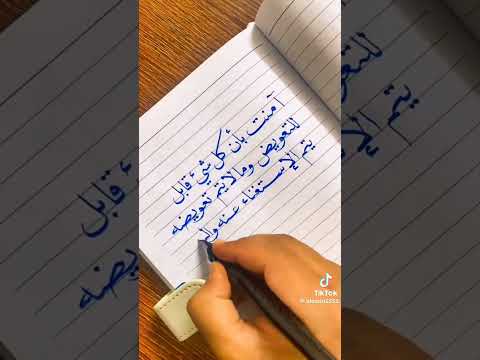 آمنت بأن كل شيء قابل
للتعويض وما لا يتم تعويضه
يتم الإستغناء عنه وال
TikTok